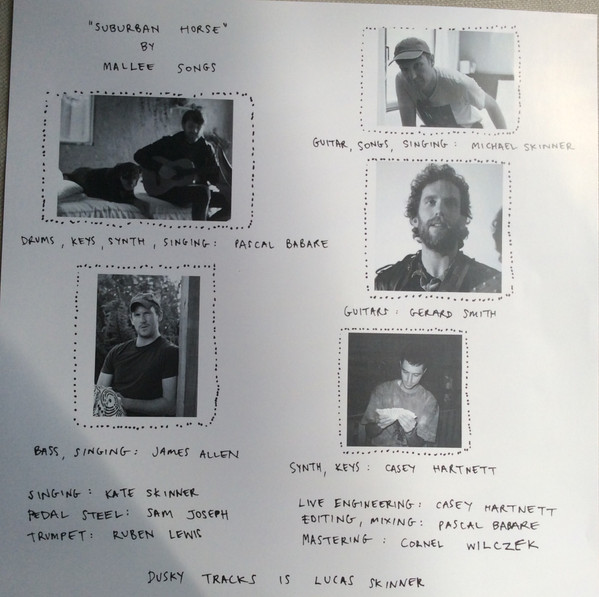 "SUBURBAN HORSE"
BY
MALLEE SONGS
GUITAR, SONGS, SINGING: MICHAEL SKINNER
DRUMS, KEYS, SYNTH, SINGING: PASCAL BABARE
GUITARS: GERARD SMITH
BASS, SINGING: JAMES ALLEN
SYNTH, KEYS: CASEY HARTNETT
SINGING: KATE SKINNER
PEDAL STEEL: SAM JOSEPH
TRUMPET: RUBEN LEWIS
LIVE ENGINEERING: CASEY HARTNETT
EDITING, MIXING: PASCAL BABARE
MASTERING: CORNEL WILCZEK
DUSKY TRACKS IS LUCAS SKINNER